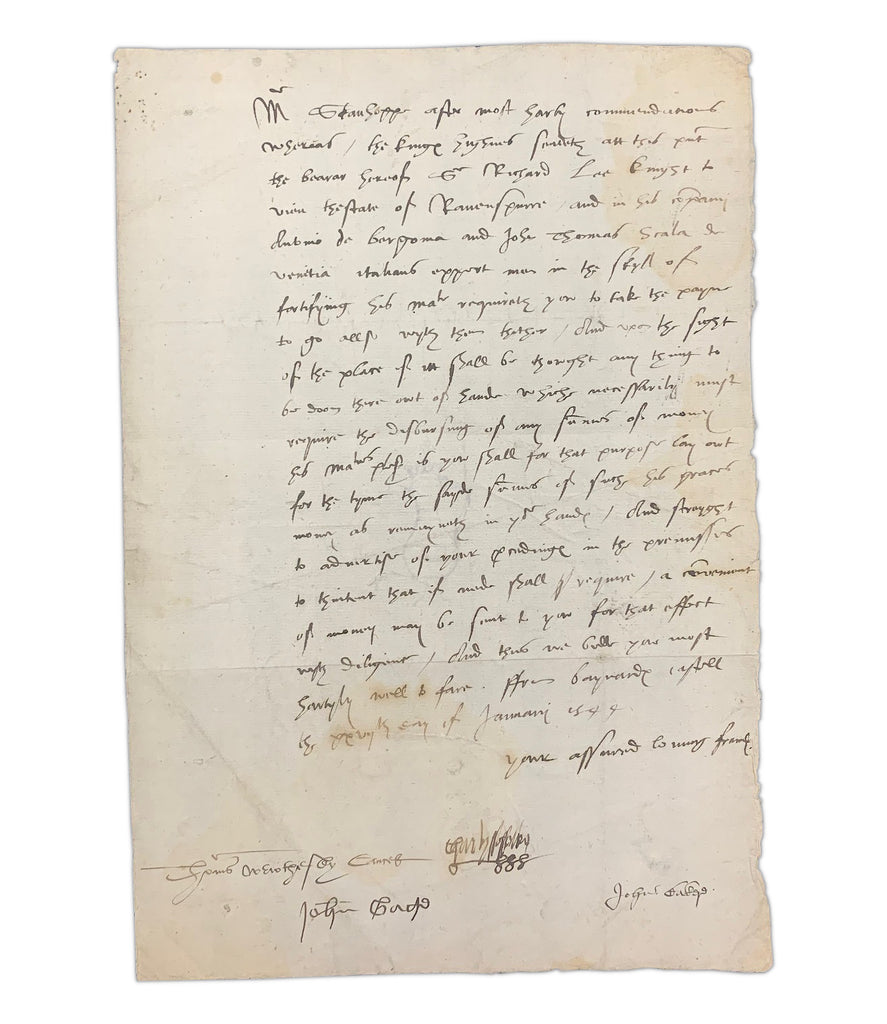 Mr Stanhoppe after most harty commendations
whereas / the kings highnes sendeth att this pnt
the bearar hereof Sr Richard Lee knyght to
view thestate of Ravenspurre , and in his company
Antonio de bergoma and John Thomas Scala de
venetia italians expert men in the skyll of
fortifying his Matie requireth you to take the payne
to go allso wyth them thither , And upon the sight
of the place if itt shall be thowght any thing to
be doon there owt of hande whiche necessarily must
require the disbursing of any summes of money
his Mates pleasr is you shall for that purpose lay owt
for the tyme the sayde summes of suche his graces
money as remayneth in yor handes / And streyght
to advertise of your pcedinges in the premisses
to thintent that if nede shall so require , a convenient
of money may be sent to you for that effect
wyth diligence / And thus we bidde you most
hartyly well to fare . ffrom baynardes castell
the xxvyth day of January 1544
your assured loving frends
Thomas Wriothesley Cancel
Charlys Suffolke
John Gage